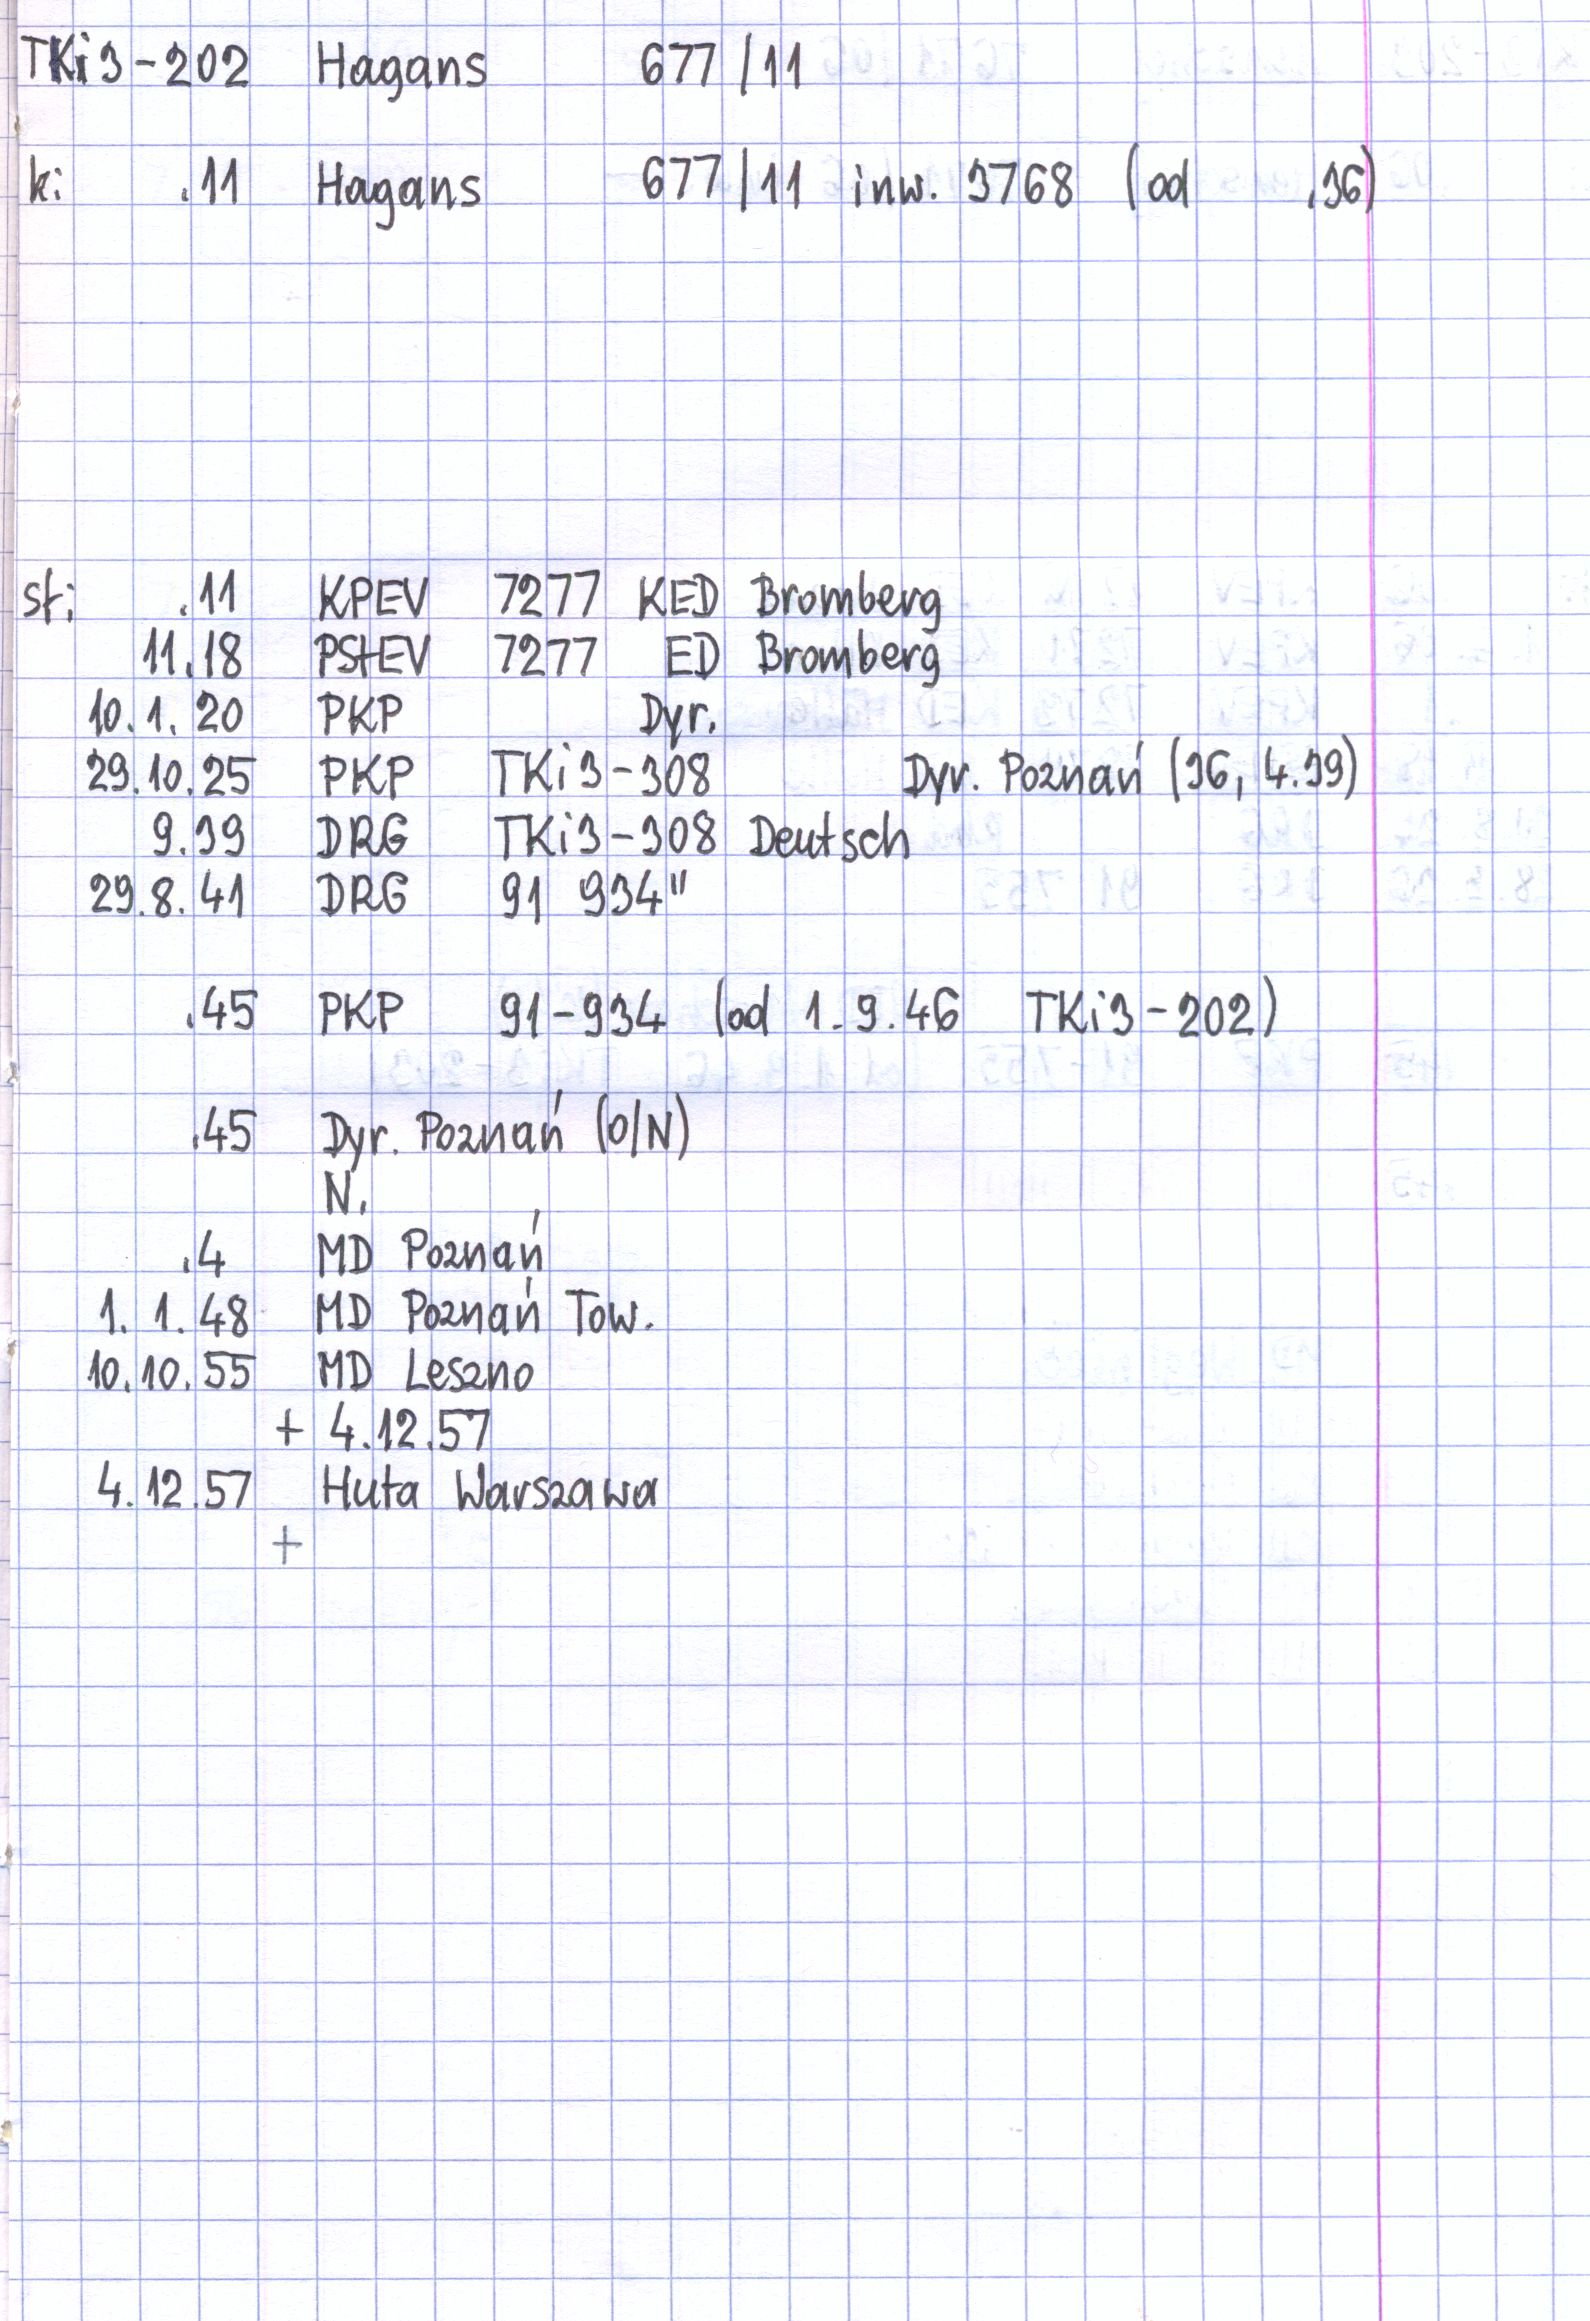 TKi3-202 Hagans 677/11
k: .11 Hagans 677/11 inw. 3768 (od .36)
st: .11 KPEV 7277 KED Bromberg
11.18 PStEV 7277 ED Bromberg
10.1.20 PKP Dyr.
29.10.25 PKP TKi3-308 Dyr. Poznań (36, 4.39)
9.39 DRG TKi3-308 Deutsch
29.8.41 DRG 91 934"
.45 PKP 91-934 (od 1.9.46 TKi3-202)
.45 Dyr. Poznań (O/N)
N.
.4 MD Poznań
1.1.48 MD Poznań Tow.
10.10.55 MD Leszno
+ 4.12.57
4.12.57 Huta Warszawa
+